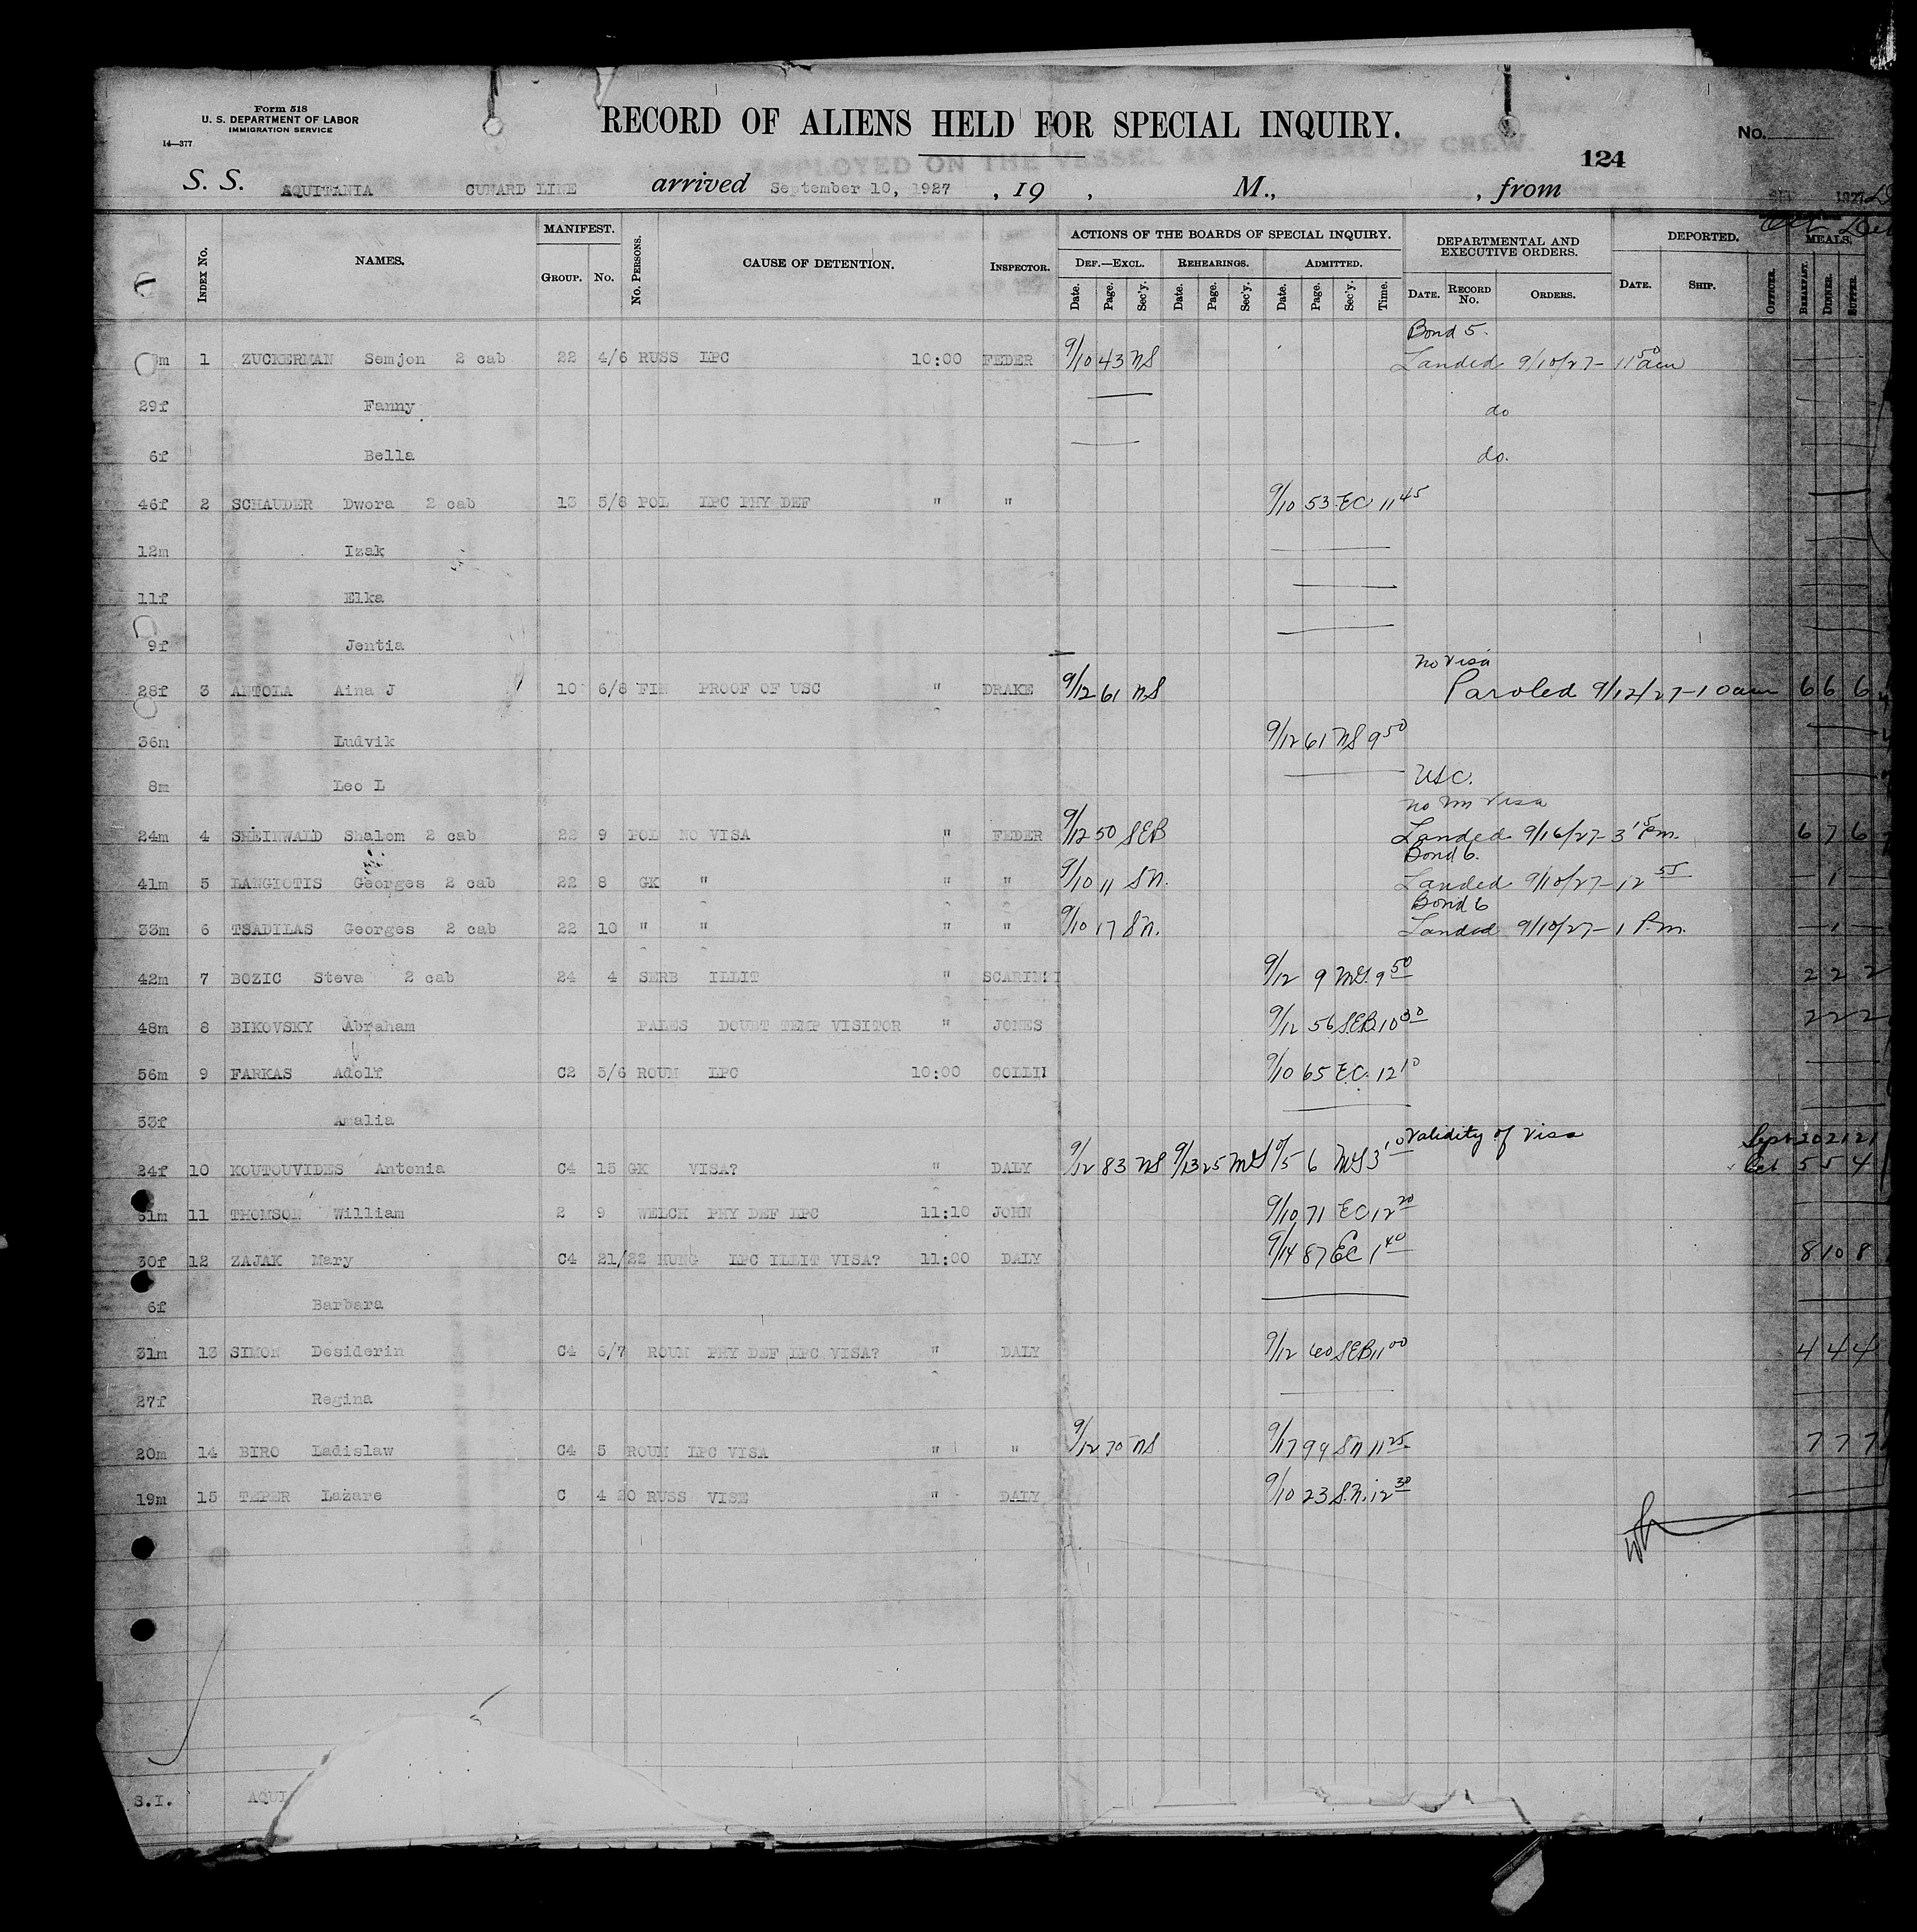 Form 518
U. S. DEPARTMENT OF LABOR
IMMIGRATION SERVICE
14—377
RECORD OF ALIENS HELD FOR SPECIAL INQUIRY.
No.
EMPLOYED ON THE VESSEL AS MEMBERS OF CREW.
124
S. S. AQUITANIA CUNARD LINE arrived September 10, 1927 , 19 , M., , from
Index No. NAMES. MANIFEST. Group. No. No. Persons. CAUSE OF DETENTION. Inspector. ACTIONS OF THE BOARDS OF SPECIAL INQUIRY. Def.—Excl. Date. Page. Sec'y. Rehearings. Date. Page. Sec'y. Admitted. Date. Page. Sec'y. Time. DEPARTMENTAL AND EXECUTIVE ORDERS. Date. Record No. Orders. DEPORTED. Date. Ship. Officer. MEALS. Breakfast. Dinner. Supper.
Bond 5.
m 1 ZUCKERMAN Semjon 2 cab 22 4/6 RUSS LPC 10:00 FEDER 9/10 43 NS Landed 9/10/27 - 11 50 am
29f Fanny do
6f Bella do.
46f 2 SCHAUDER Dwora 2 cab 13 5/8 POL LPC PHY DEF " " 9/10 53 EC 11 45
12m Izak
11f Elka
9f Jentia
no visa
28f 3 ANTOLA Aina J 10 6/8 FIN PROOF OF USC " DRAKE 9/12 61 NS Paroled 9/12/27 - 10 am 6 6 6
36m Ludvik 9/12 61 NS 9 50
8m Leo L USC.
no im visa
24m 4 SHEINWALD Shalom 2 cab 22 9 POL NO VISA " FEDER 9/12 50 SEB Landed 9/16/27 - 3 15 Pm. 6 7 6
Bond 6.
41m 5 LANGIOTIS Georges 2 cab 22 8 GK " " " 9/10 11 SN. Landed 9/10/27 - 12 55 — 1 —
Bond 6
33m 6 TSADILAS Georges 2 cab 22 10 " " " " 9/10 17 SN. Landed 9/10/27 - 1 P.m. — 1 —
42m 7 BOZIC Steva 2 cab 24 4 SERB ILLIT " 9/12 9 MS. 9 50 2 2 2
48m 8 BIKOVSKY Abraham PALES DOUBT TEMP VISITOR " JONES 9/12 56 SEB 10 30 2 2 2
56m 9 FARKAS Adolf C2 5/6 ROUM LPC 10:00 COLLI 9/10 65 E.C. 12 10
53f Amalia
Validity of Visa Sept 20 21 21
24f 10 KOUTOUVIDES Antonia C4 15 GK VISA? " DALY 9/12 83 NS 9/13 25 MS 6 MS 3 10 Oct 5 5 4
51m 11 THOMSON William 2 9 WELCH PHY DEF LPC 11:10 JOHN 9/10 71 EC 12 20
30f 12 ZAJAK Mary C4 21/22 HUNG LPC ILLIT VISA? 11:00 DALY 9/14 87 EC 1 40 8 10 8
6f Barbara
31m 13 SIMON Desiderin C4 6/7 ROUM PHY DEF LPC VISA? " DALY 9/12 60 SEB 11 00 4 4 4
27f Regina
20m 14 BIRO Ladislaw C4 5 ROUM LPC VISA " " 9/12 70 NS 9/17 99 SN 11 25 7 7 7
19m 15 TEPER Lazare C 4 20 RUSS VISE " DALY 9/10 23 S.N. 12 30
S.I. AQUI